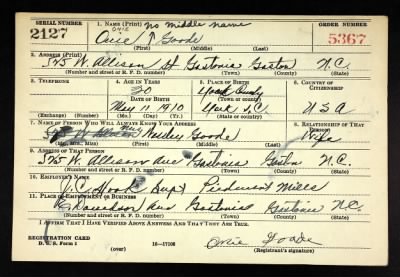 SERIAL NUMBER
1. NAME (Print) no middle name
ORDER NUMBER
2127
ONIE
Onie T Goode
5367
(First) (Middle) (Last)
2. ADDRESS (Print)
545 W. Allison St Gastonia Gaston N.C.
(Number and street or R. F. D. number) (Town) (County) (State)
3. TELEPHONE
4. AGE IN YEARS
5. PLACE OF BIRTH
6. COUNTRY OF CITIZENSHIP
30
York County
DATE OF BIRTH
(Town or county)
May 11 1910
York S.C.
USA
(Exchange) (Number)
(Mo.) (Day) (Yr.)
(State or country)
7. NAME OF PERSON WHO WILL ALWAYS KNOW YOUR ADDRESS
8. RELATIONSHIP OF THAT PERSON
Mrs Goode
Wife
(Mr., Mrs., Miss) (First) (Middle) (Last)
9. ADDRESS OF THAT PERSON
545 W. Allison Ave Gastonia Gaston N.C.
(Number and street or R. F. D. number) (Town) (County) (State)
10. EMPLOYER'S NAME
Supt Piedmont Mills
11. PLACE OF EMPLOYMENT OR BUSINESS
Davidson Ave Gastonia Gastonia N.C.
(Number and street or R. F. D. number) (Town) (County) (State)
I AFFIRM THAT I HAVE VERIFIED ABOVE ANSWERS AND THAT THEY ARE TRUE.
REGISTRATION CARD
D. S. S. Form 1
(over)
16—17105
Onie Goode
(Registrant's signature)